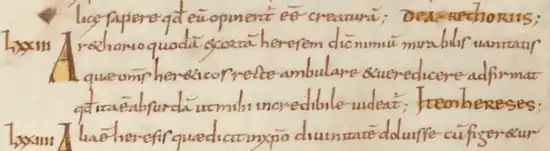 lice sapere qđ eū opinent̄ eē creaturā; De a rethoriis;
LXXIII A rethorio quodā exortā heresem dic̄ nimiū mirabilis uanitatis
quae om̄s her&icos recte ambulare & uere dicere adfirmat
qđ ita ē absurdū ut mihi incredibile uideat̄; Item hereses;
LXXIIII Alia ē heresis quae dicit in xp̄o diuinitatē doluisse cū figer&ur